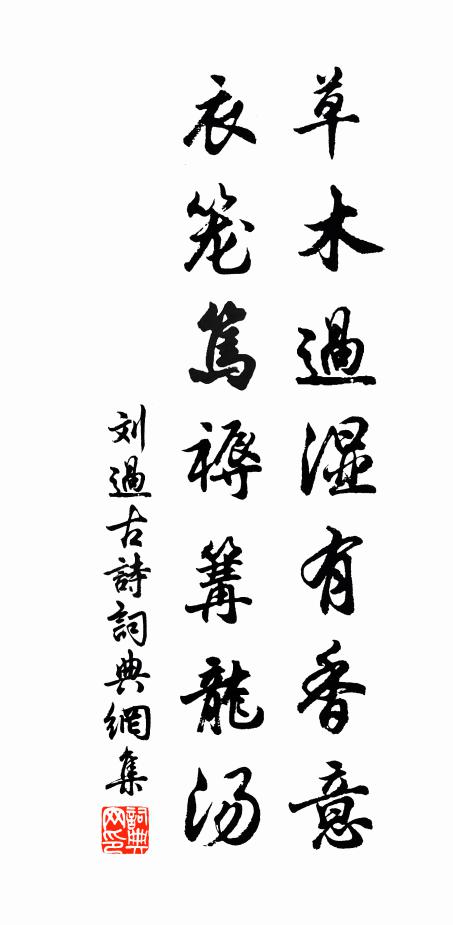 草木過湿有香意
衣笼篤褥篝龍汤
刘過古詩詞典網集
詞典网印